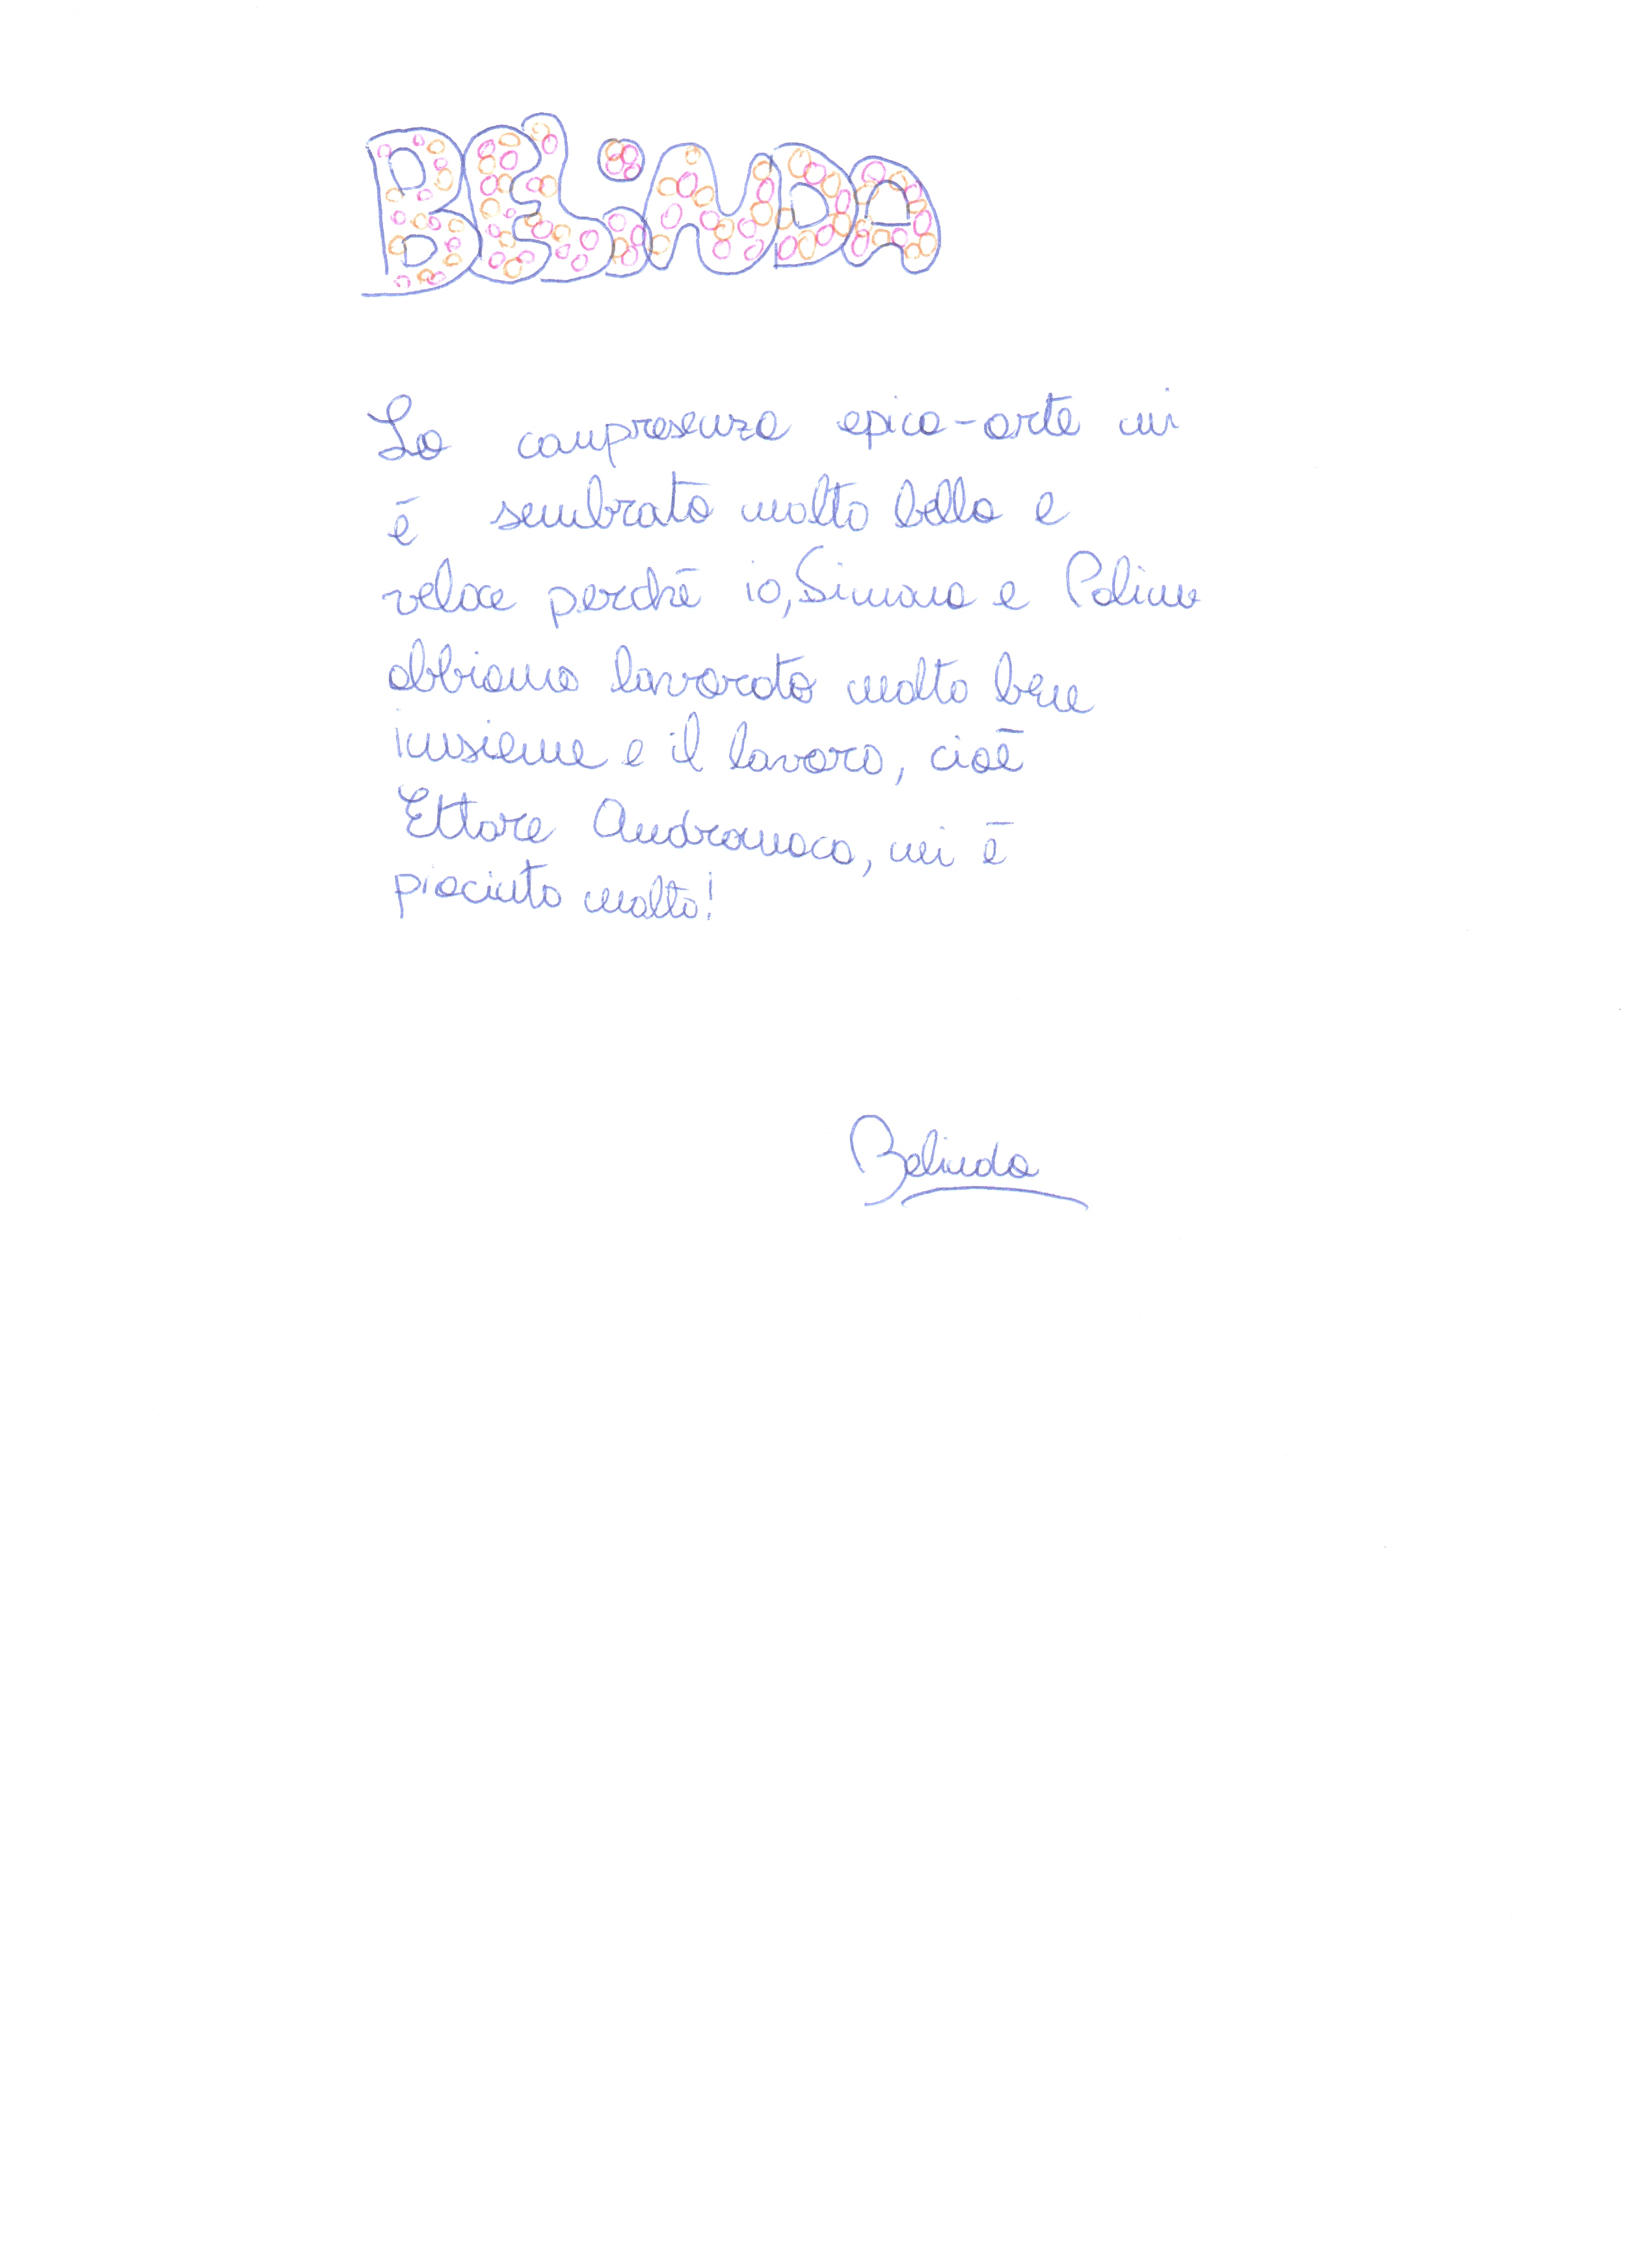 BELiNDA
La compresenza epica-arte mi
è sembrata molto bella e
veloce perché io, Simona e
abbiamo lavorato molto bene
insieme e il lavoro, cioè
Ettore Andromaca, mi è
piaciuto molto!
Belinda